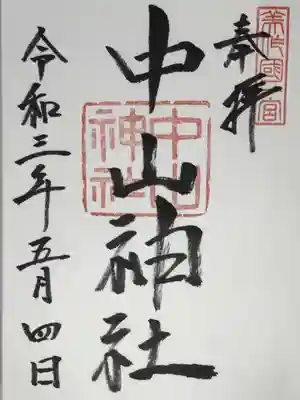 美作國一宮
奉拝
中山神社
中山
神社
令和三年五月四日